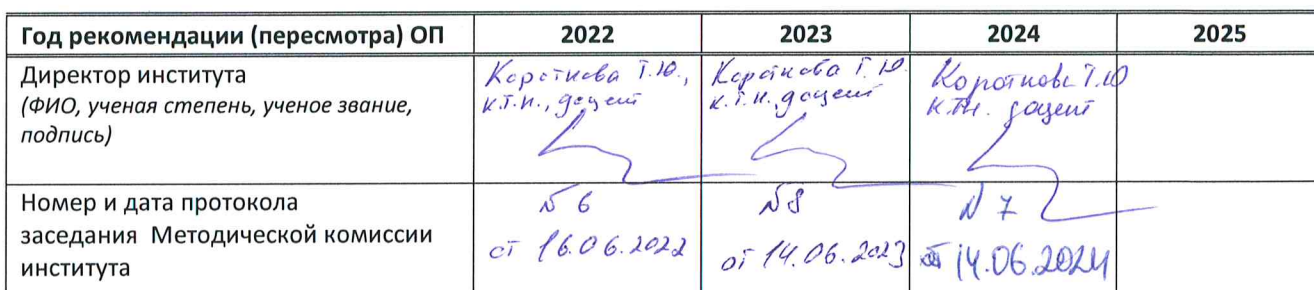 Год рекомендации (пересмотра) ОП 2022 2023 2024 2025
Директор института
(ФИО, ученая степень, ученое звание,
подпись)
Короткова Т.Ю.,
к.т.н., доцент
Короткова Т.Ю.
к.т.н., доцент
Короткова Т.Ю
к.т.н. доцент
Номер и дата протокола
заседания Методической комиссии
института
№ 6
от 16.06.2022
№8
от 14.06.2023
№ 7
от 14.06.2024